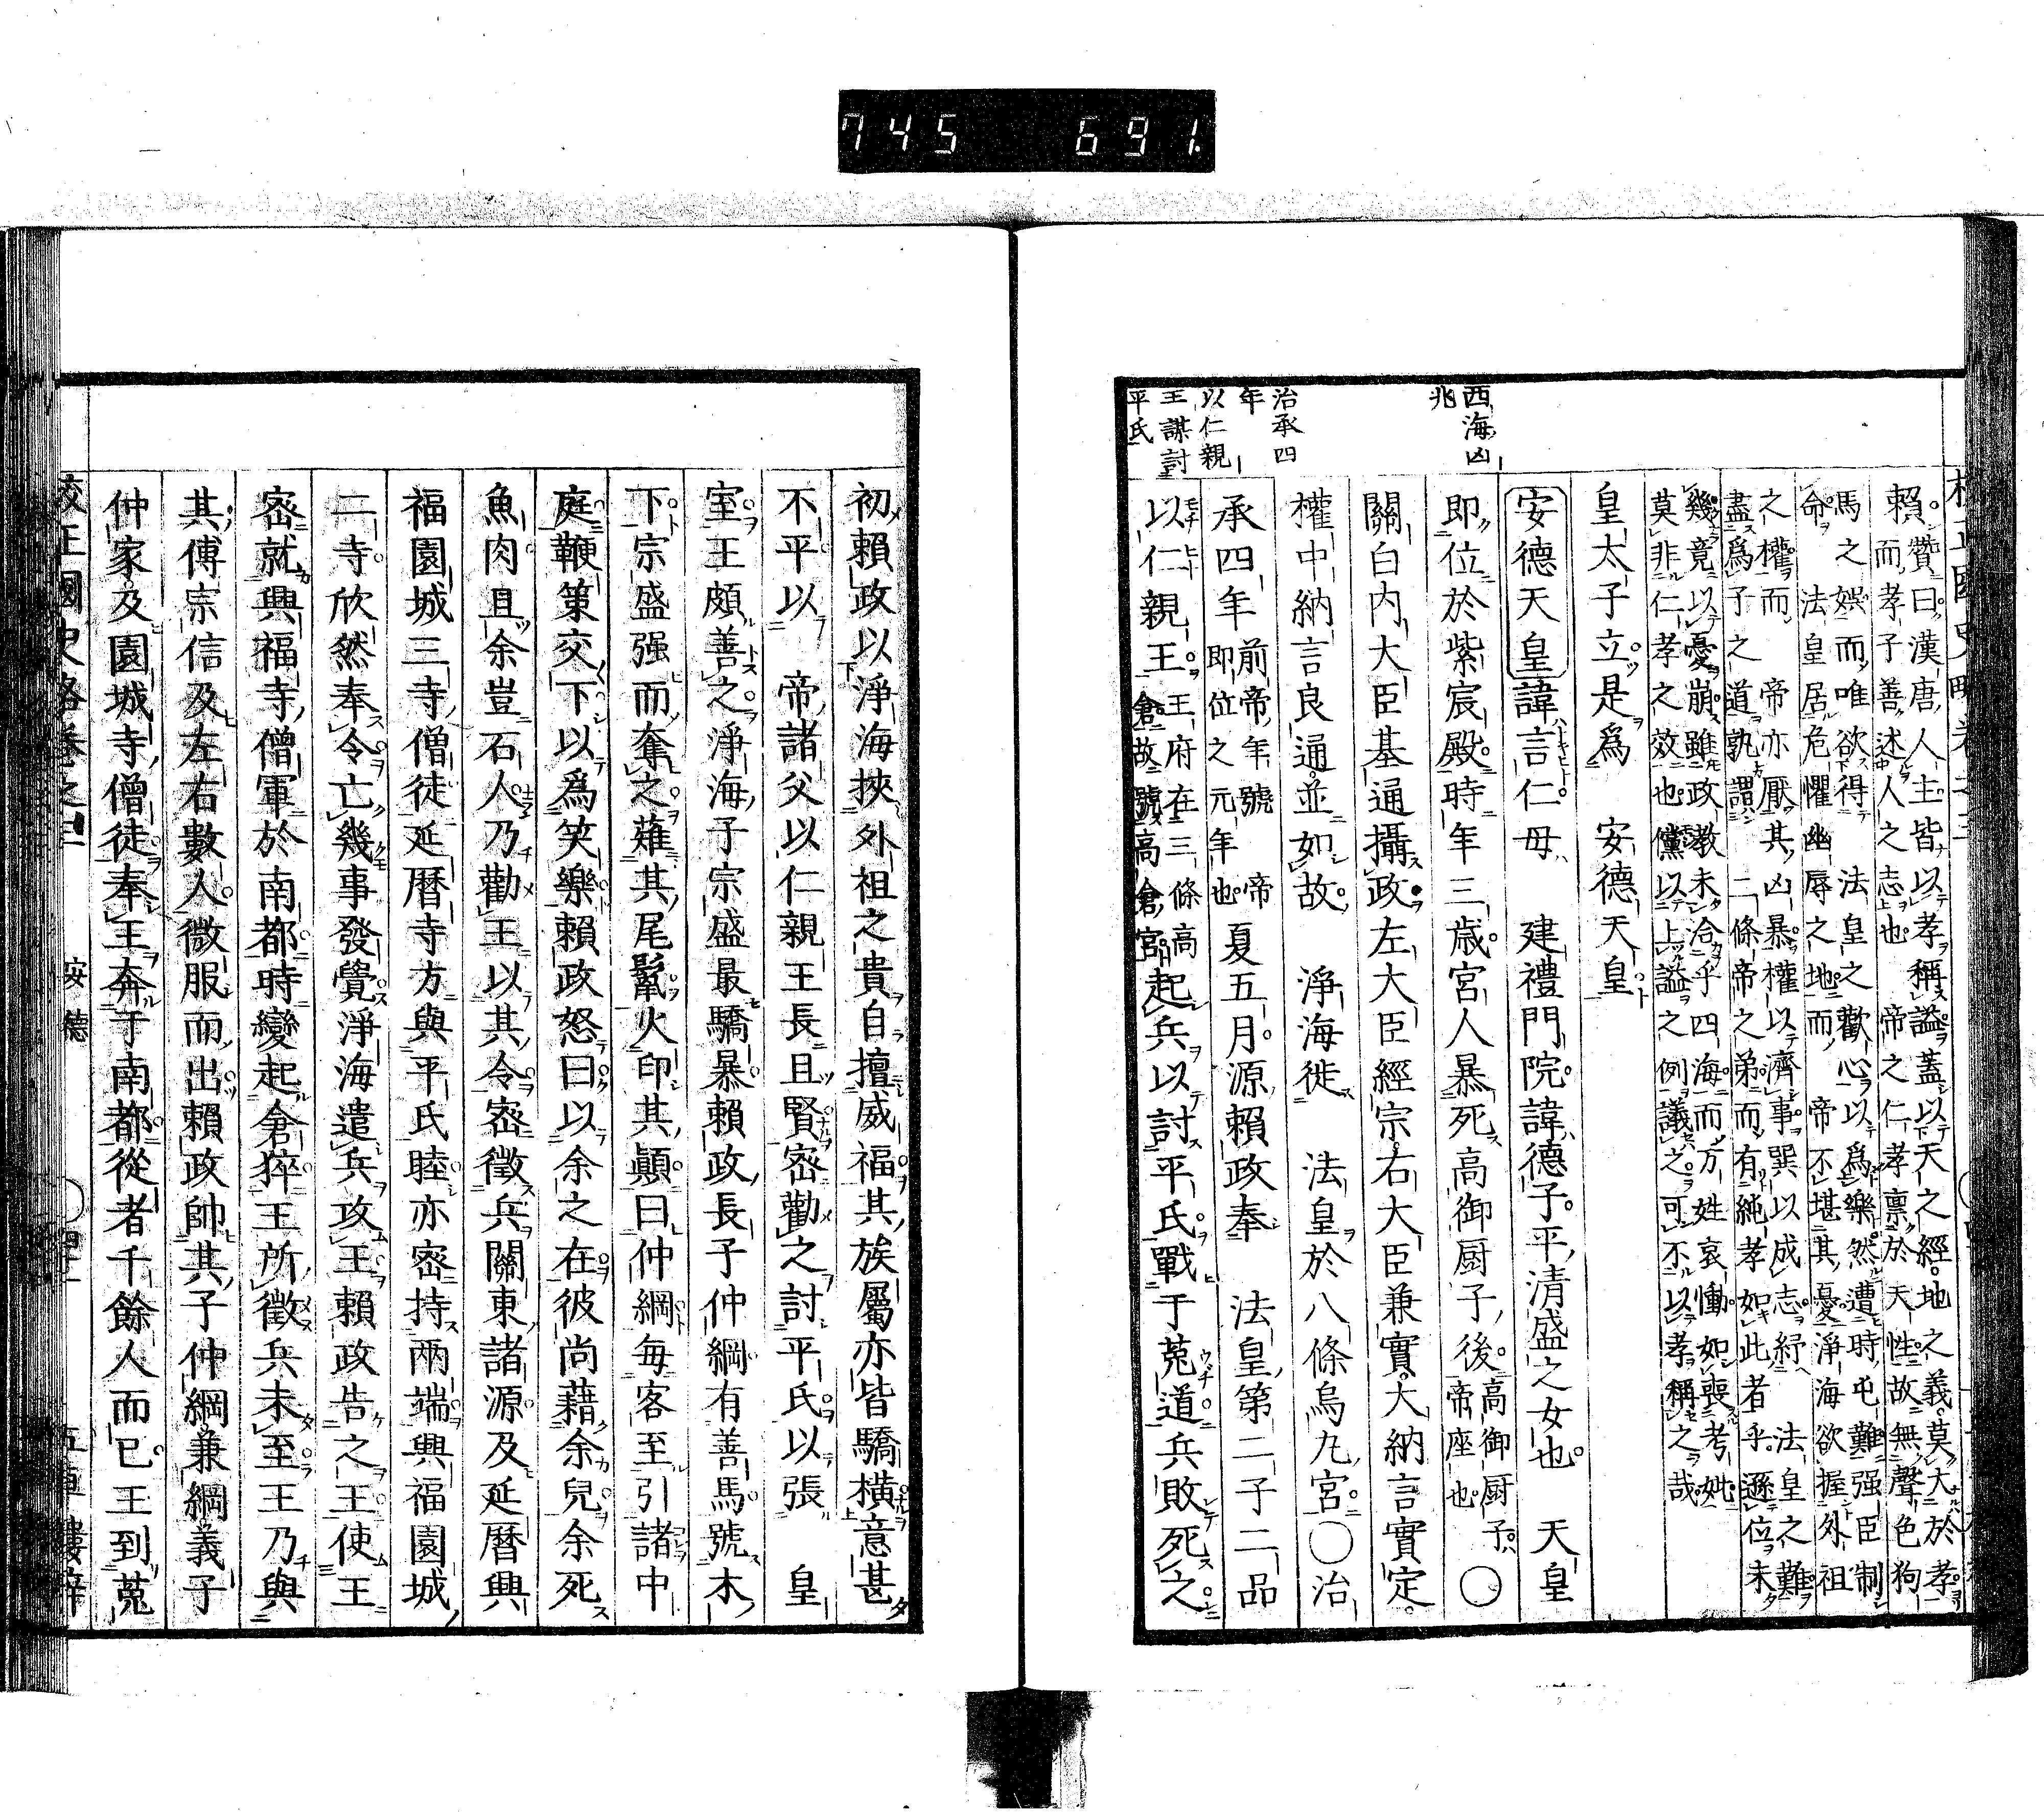 745 691.
賴贊曰漢唐人主皆以孝稱謚蓋以天之經地之義莫大於孝
而孝子善述人之志也 帝之仁孝稟於天性故無聲色狗
馬之娯而唯欲得 法皇之歡心以爲樂然遭時屯難强臣制
命 法皇居危懼幽辱之地而 帝不堪其憂淨海欲握外祖
之權而 帝亦厭其凶暴權以濟事巽以成志紓 法皇之難
盡爲子之道孰謂 二條帝之弟而有純孝如此者乎遜位未
幾竟以憂崩雖政教未洽乎四海而万姓哀慟如喪考妣
莫非仁孝之效也儻以上謚之例議之可不以孝稱之哉
皇太子立是爲 安德天皇
安德天皇諱言仁母 建禮門院諱德子平清盛之女也 天皇
西海凶
兆
即位於紫宸殿時年三歲宮人暴死高御厨子後高御厨子帝座也〇
關白內大臣基通攝政左大臣經宗右大臣兼實大納言實定
權中納言良通並如故 淨海徙 法皇於八條烏丸宮〇治
治承四
年
承四年前帝年號帝即位之元年也夏五月源賴政奉 法皇第二子二品
以仁親
王謀討
平氏
以仁親王王府在三條高倉故號高倉宮起兵以討平氏戰于菟道兵敗死之
初賴政以淨海挾外祖之貴自擅威福其族屬亦皆驕橫意甚
不平以 帝諸父以仁親王長且賢密勸之討平氏以張 皇
室王頗善之淨海子宗盛最驕暴賴政長子仲綱有善馬號木
下宗盛强而奪之薙其尾鬣火印其顚曰仲綱每客至引諸中
庭鞭策交下以爲笑樂賴政怒曰以余之在彼尚藉余兒余死
魚肉且余豈石人乃勸王以其令密徵兵關東諸源及延曆興
福園城三寺僧徒延曆寺方與平氏睦亦密持兩端興福園城
二寺欣然奉令亡幾事發覺淨海遣兵攻王賴政告之王使王
密就興福寺僧軍於南都時變起倉猝王所徵兵未至王乃與
其傅宗信及左右數人微服而出賴政帥其子仲綱兼綱義子
仲家及園城寺僧徒奉王奔于南都從者千餘人而已王到菟
校正國史略卷之三 安德